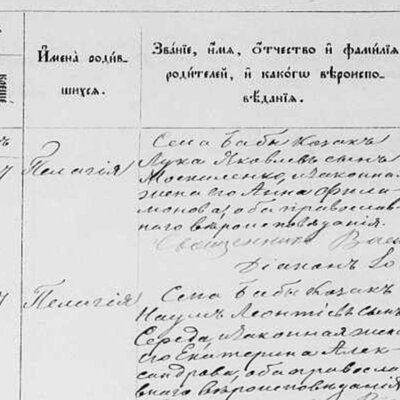 Имена родив-
шихся.
Званіе, имя, отчество и фамилія
родителей, и какого вѣроиспо-
вѣданія.
Пелагія
Села Бабы Козакъ
Лука Яковлевъ сынъ
и законная
жена его Анна Фили-
монова, оба православ-
наго вѣроисповѣданія.
Священникъ
Діаконъ
Пелагія
Села Бабы Козакъ
Наумъ Леонтіевъ сынъ
Середа, и законная жена
его Екатерина Алек-
сандрова, оба правосла-
внаго вѣроисповѣданія